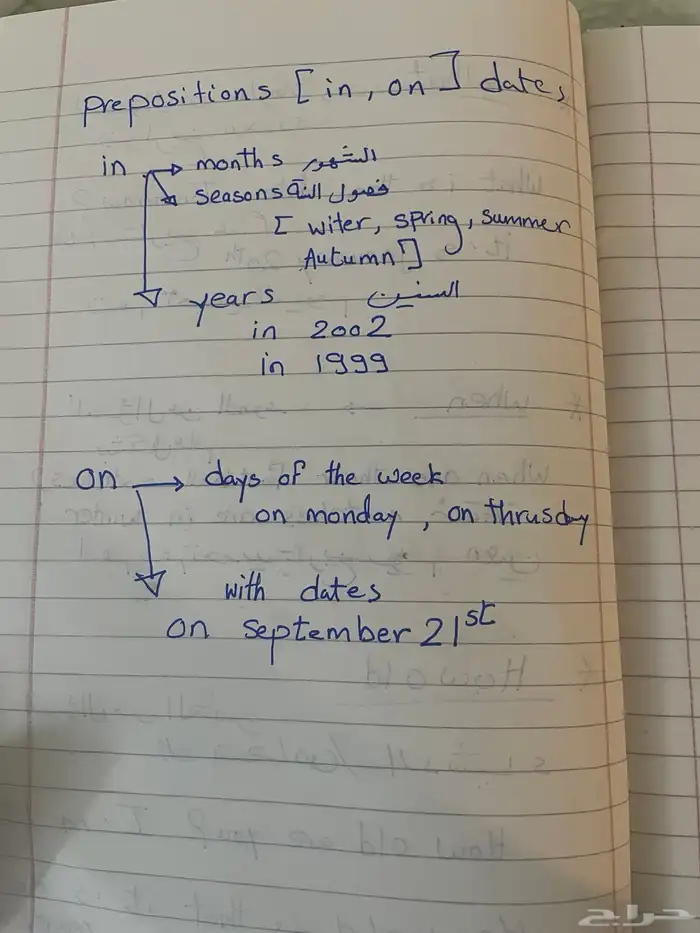 prepositions [in, on] dates
in → months الشهور
seasons فصول السنة
[ witer, spring, summer
Autumn ]
years السنين
in 2002
in 1999
on → days of the week
on monday, on thrusday
with dates
on september 21st
حراج